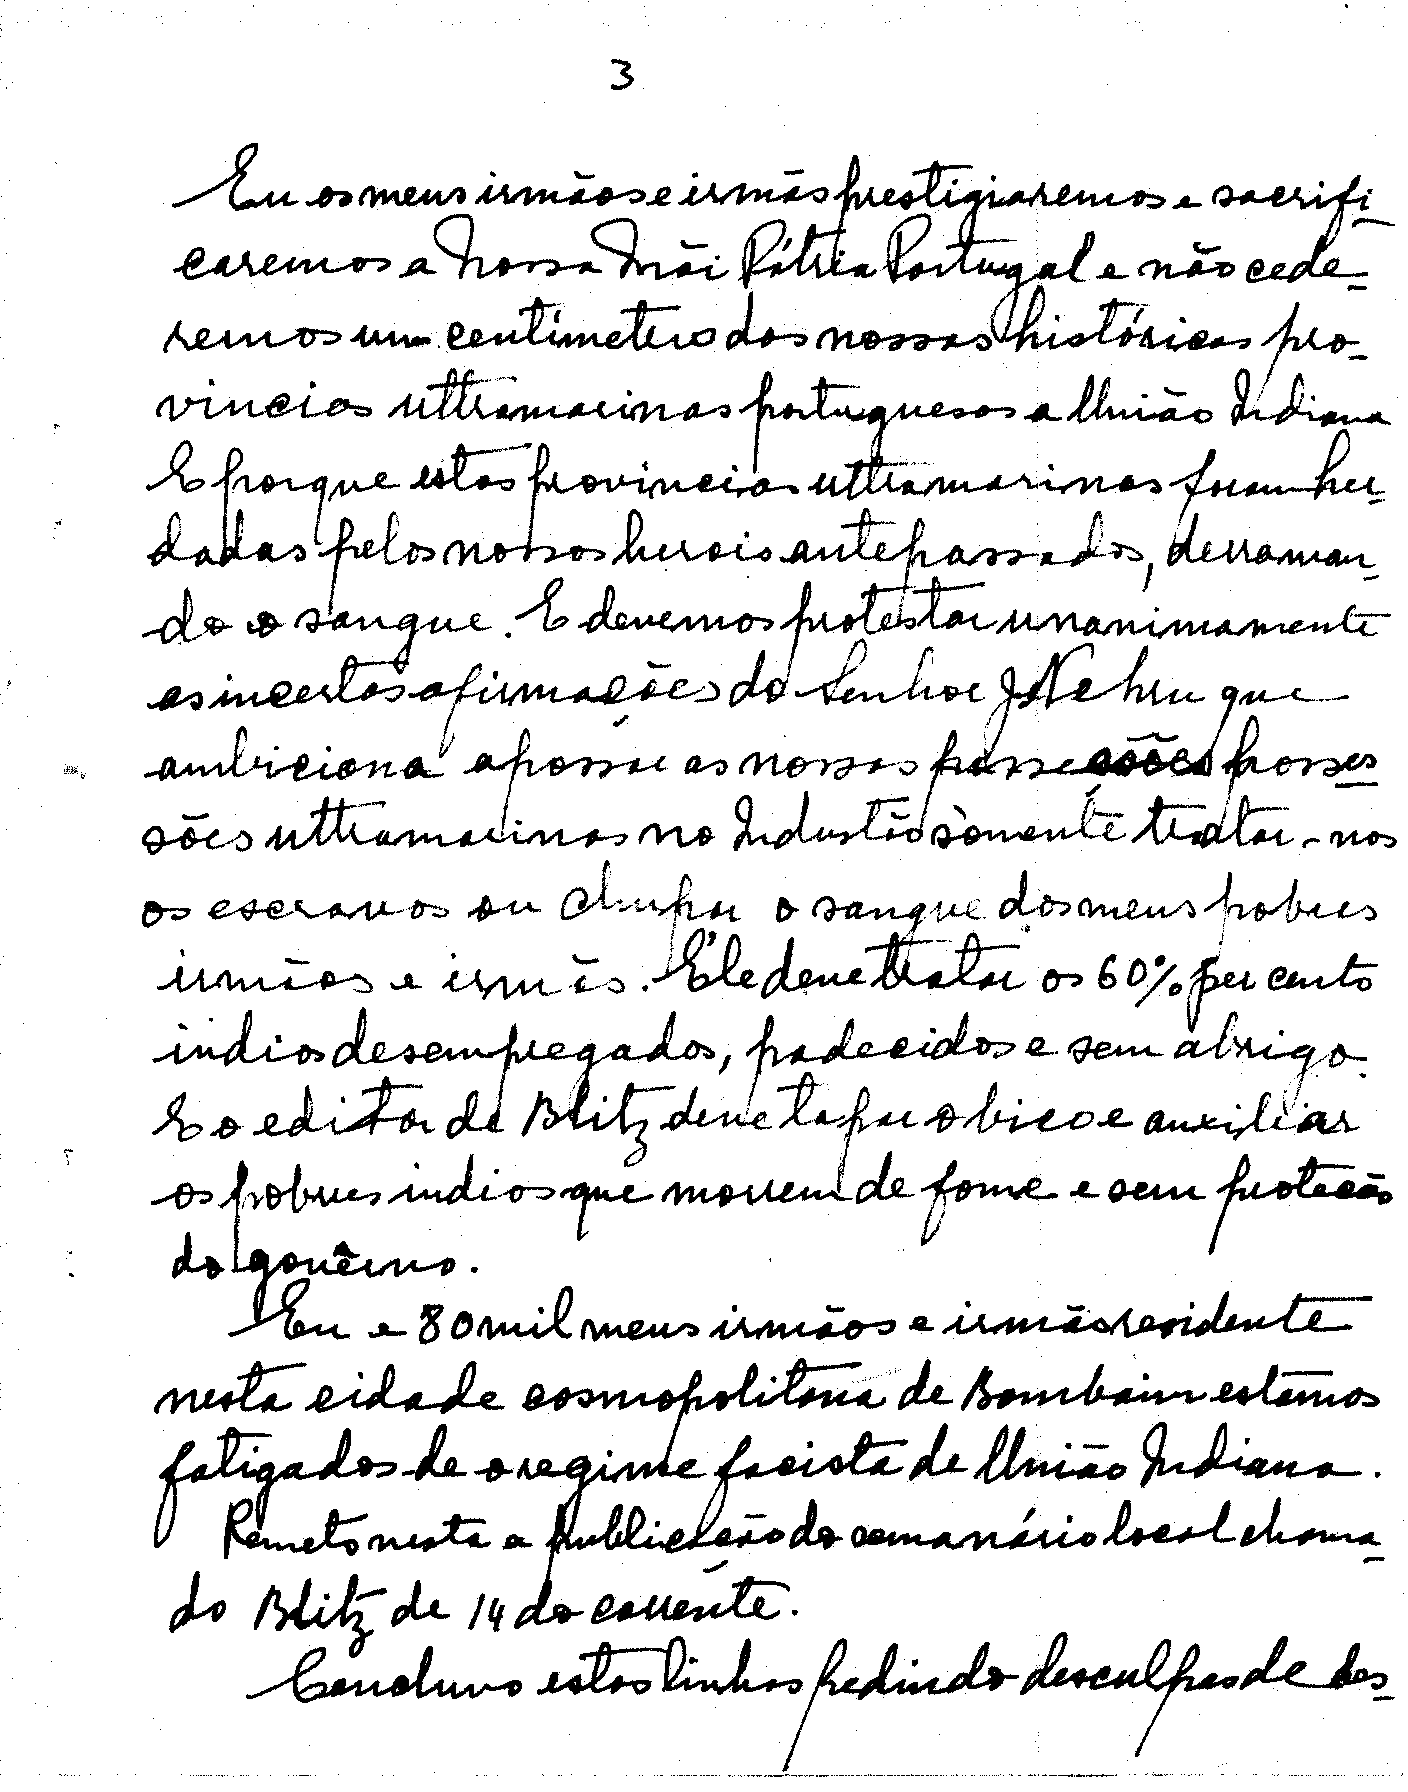 3
Eu os meus irmãos e irmãs prestigiaremos e sacrifi-
caremos a Nossa Mãi Pátria Portugal e não cede-
remos um centímetro das nossas históricas pro-
vincias ultramarinas portuguesas a União Indiana
E porque estas provincias ultramarinas foram her-
dadas pelos nossos herois antepassados, derraman-
do o sangue. E devemos protestar unanimamente
as incertas afirmações do Senhor J. Nehru que
ambiciona apossar as nossas possessões posses-
sões ultramarinas no Industão sòmente tratar-nos
os escravos ou chupar o sangue dos meus pobres
irmãos e irmãs. Êle deve tratar os 60% per cento
indios desempregados, padecidos e sem abrigo.
E o editor de Blitz deve tapar o bico e auxiliar
os pobres indios que morrem de fome e sem proteção
do govêrno.
Eu e 80 mil meus irmãos e irmãs residente
nesta cidade cosmopolitana de Bombaim estamos
fatigados de o regime facista de União Indiana.
Remeto nesta a publicação do semanário local chama-
do Blitz de 14 do corrente.
Concluvo estas linhas pedindo desculpas de des-